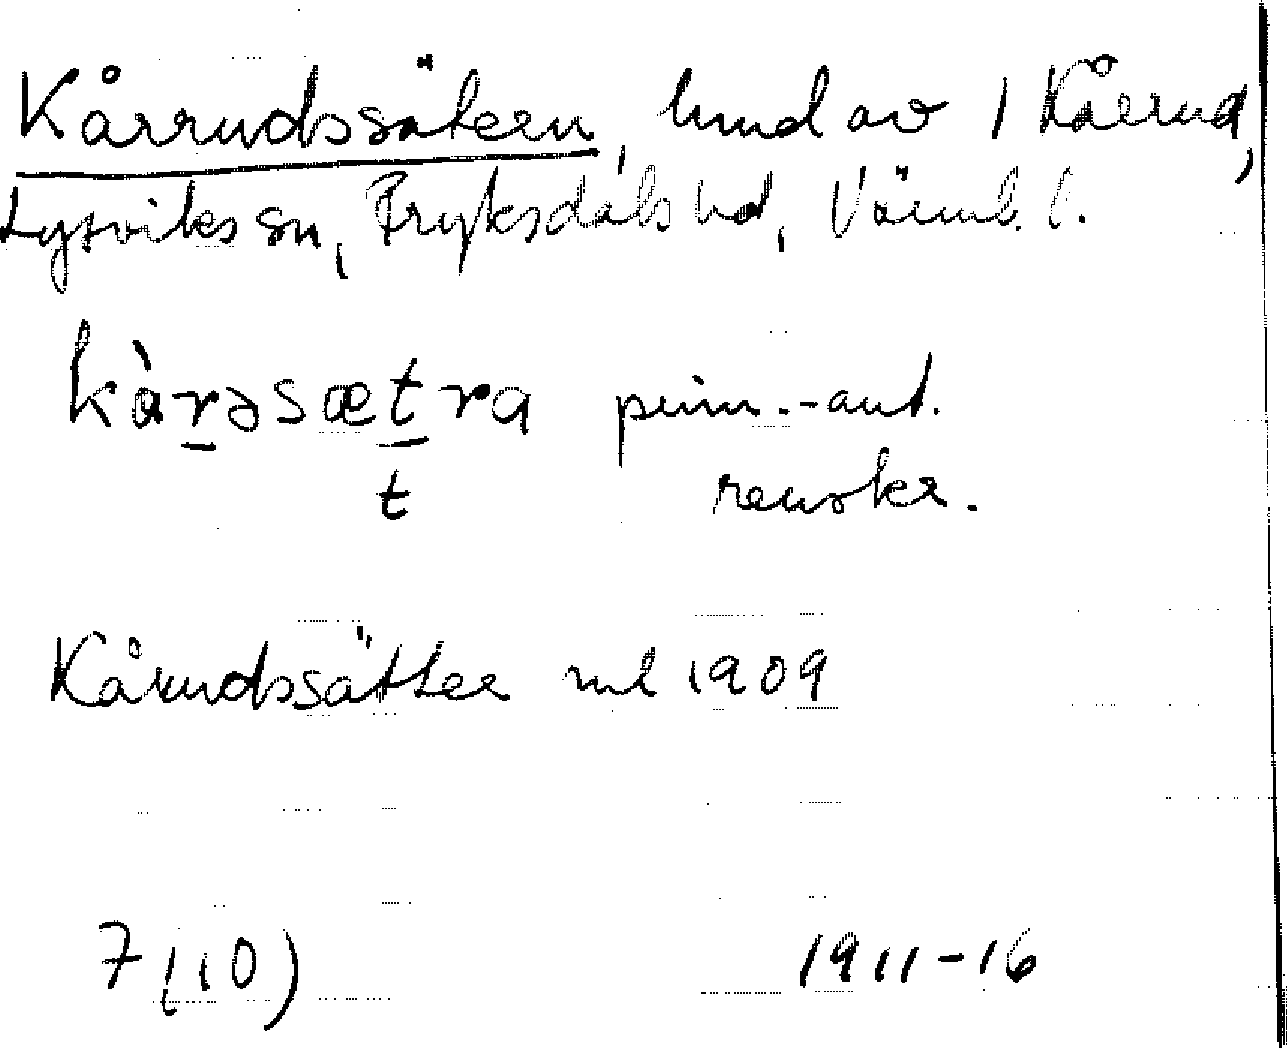 Kårrudssätern, hmd av 1 Kårrud,
Lysviks sn, Fryksdals hd, Värml. l.
kàrəsætra prim.-ant.
t renskr.
Kårudssätter ml 1909
7 (10) 1911-16